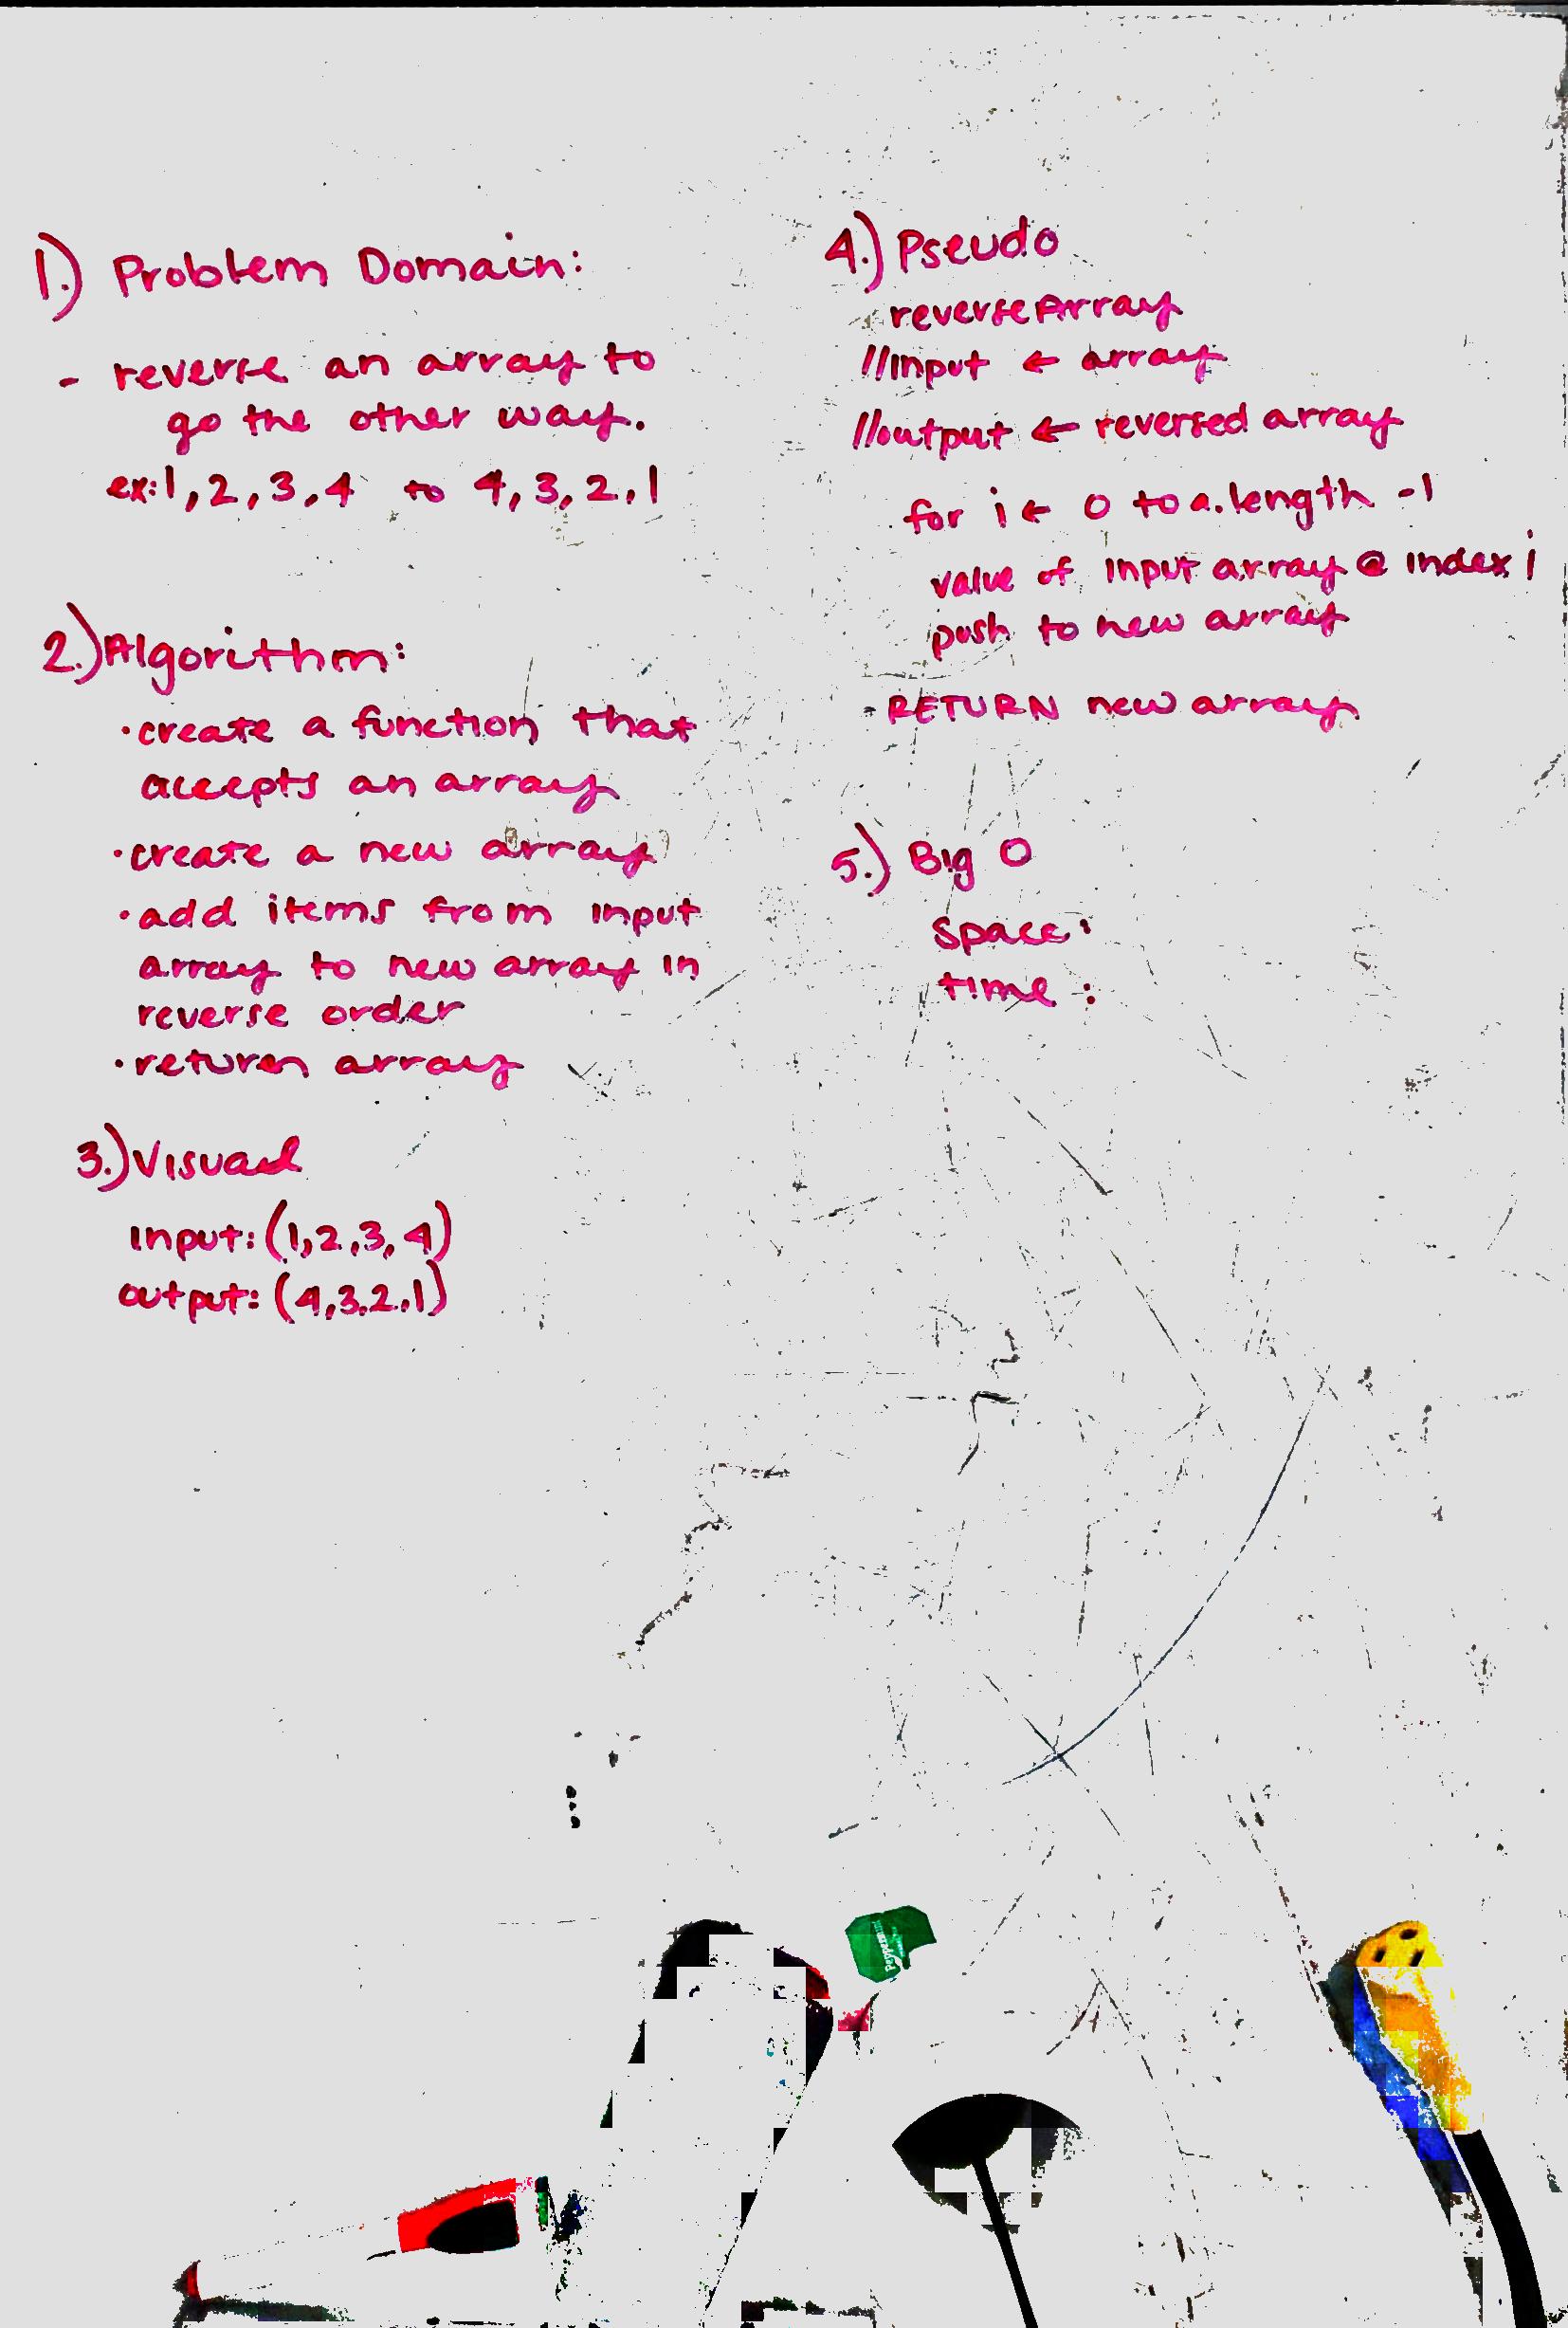 1.) Problem Domain:
- reverse an array to
go the other way.
ex: 1, 2, 3, 4 to 4, 3, 2, 1
2.) Algorithm:
· create a function that
accepts an array
· create a new array
· add items from input
array to new array in
reverse order
· return array
3.) Visual
input: (1, 2, 3, 4)
output: (4, 3, 2, 1)
4.) Pseudo
reverseArray
//input ← array
//output ← reversed array
for i ← 0 to a.length -1
value of input array @ index i
push to new array
RETURN new array
5.) Big O
space:
time:
Peppermint